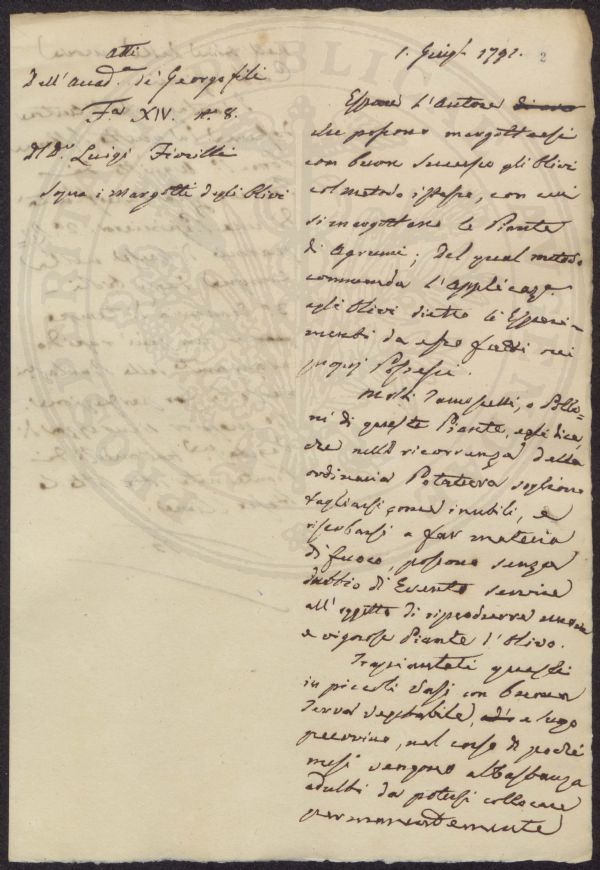 Atti
Dell'Accad.ª de' Georgofili
Fa. XIV. n.° 8.
Del D.r Luigi Fiorilli
sopra i margotti degli Olivi
1. Giug.° 1791.
2
Espone l'Autore
che possono margottarsi
con buon successo gli Olivi
col metodo istesso, con cui
si margottano le Piante
di Agrumi; Del qual metodo
commenda l'Applicaz.e
agli Olivi dietro li Esperi-
menti da esso fatti nei
proprj Possessi.
Molti Ramoscelli, o Pollo-
ni di queste Piante, egli dice,
che nella ricorrenza della
ordinaria Potatura sogliono
tagliarsi come inutili, e
riserbarsi a far materia
di fuoco, possono senza
dubbio di Evento servire
all'oggetto di riprodurre nuove
e vigorose Piante d'Olivo.
Trapiantati questi
in piccoli Vasi con buona
Terra vegetabile, e sugo
pecorino, nel corso di pochi
mesi vengono abbastanza
adulti da potersi collocare
permanentemente